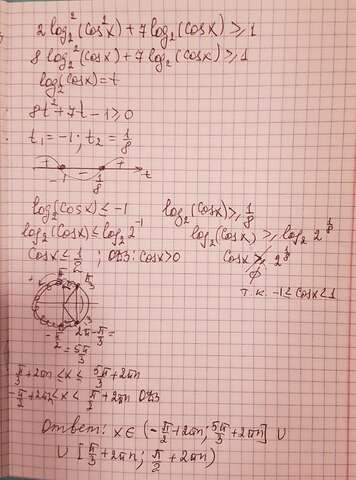 2 log₂²(cos²x) + 7 log₂(cosx) ≥ 1
8 log₂²(cosx) + 7 log₂(cosx) ≥ 1
log₂(cosx) = t
8t² + 7t - 1 ≥ 0
t₁ = -1; t₂ = 1/8
+ - + -1 1/8 t
log₂(cosx) ≤ -1 log₂(cosx) ≥ 1/8
log₂(cosx) ≤ log₂2⁻¹ log₂(cosx) ≥ log₂2^(1/8)
cosx ≤ 1/2; ОДЗ: cosx > 0 cosx ≥ 2^(1/8)
∅
т.к. -1 ≤ cosx ≤ 1
π/2 π/3
-π/2 2π - π/3 =
= 5π/3
π/3 + 2πn ≤ x ≤ 5π/3 + 2πn
-π/2 + 2πn < x < π/2 + 2πn ОДЗ
Ответ: x ∈ (-π/2 + 2πn; 5π/3 + 2πn] ∪
∪ [π/3 + 2πn; π/2 + 2πn)